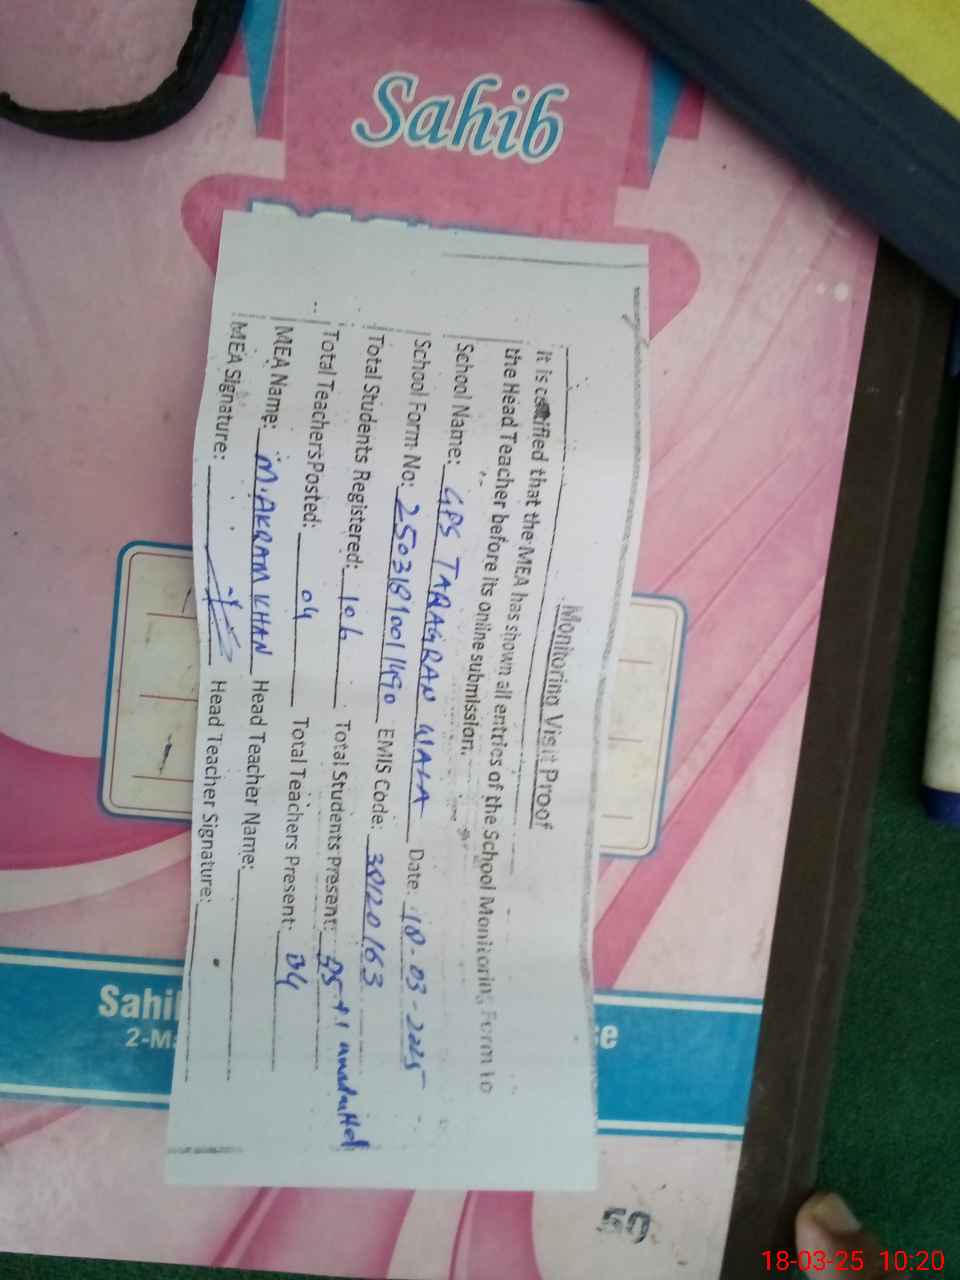 Sahib
Monitoring Visit Proof
It is certified that the MEA has shown all entries of the School Monitoring Form to
the Head Teacher before its online submission.
School Name: GPS TARAGRAN WALA Date: 18-03-2025
School Form No: 2503181001490 EMIS Code: 38120163
Total Students Registered: 106 Total Students Present: 85 + 1
Total Teachers Posted: 04 Total Teachers Present: 04
MEA Name: M. AKRAM KHAN Head Teacher Name:
MEA Signature: Head Teacher Signature:
Sahi
2-M
se
18-03-25 10:20